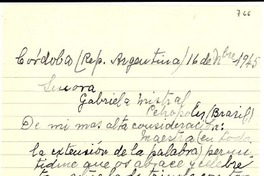 766
Córdoba (Rep. Argentina) 16 de Nbre 1945
Señora
Gabriela Mistral
Petropolis (Brasil)
De mi mas alta consideración:
Maestra (en toda
la extensión de la palabra) permi-
tidme que os abrace y celebre